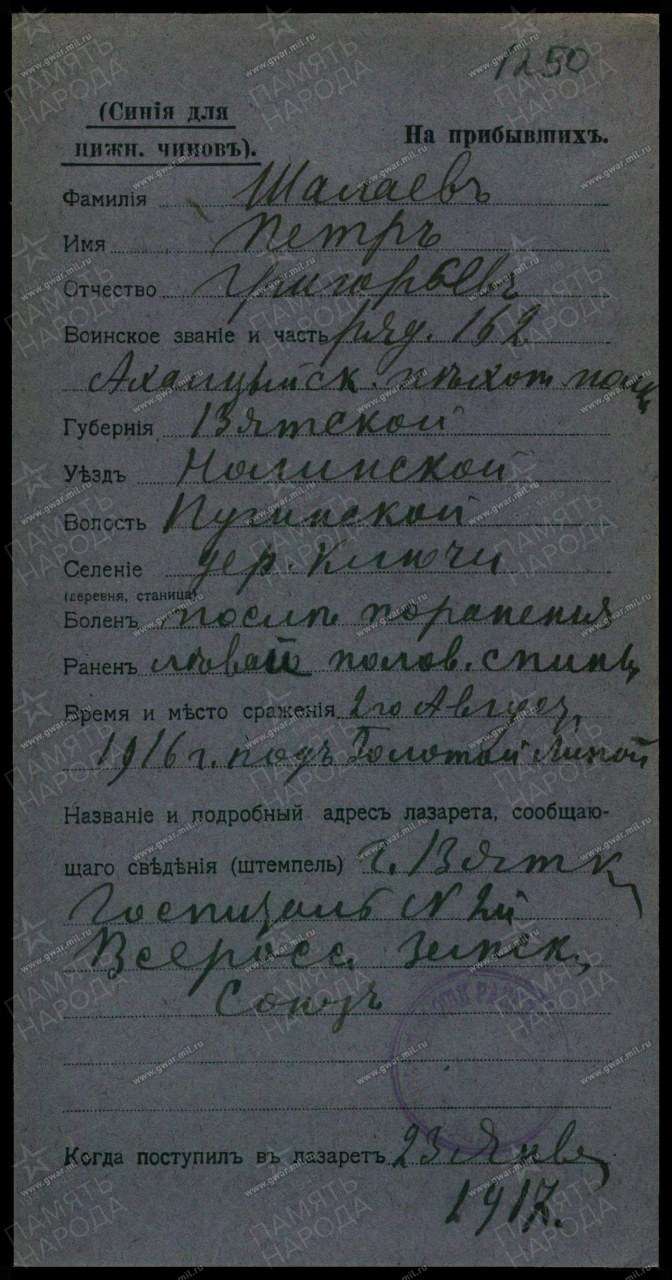 1250
(Синія для
нижн. чиновъ).
На прибывшихъ.
Фамилія Шалаевъ
Имя Петръ
Отчество Григорьевъ
Воинское званіе и часть ряд. 162
Ахалцыйск. пѣхот полк
Губернія Вятской
Уѣздъ Нолинской
Волость
Селеніе дер. Ключи
(деревня, станица)
Боленъ послѣ поранения
Раненъ левой полов. спины
Время и мѣсто сраженія 2го Август
1916 г. подъ Золотой Липой
Названіе и подробный адресъ лазарета, сообщаю-
щаго свѣдѣнія (штемпель) г. Вятк
Госпиталь N 2й
Всеросс. Земск.
Союзъ
Когда поступилъ въ лазаретъ 23 Янв
1917.
ПАМЯТЬ
НАРОДА
www.gwar.mil.ru